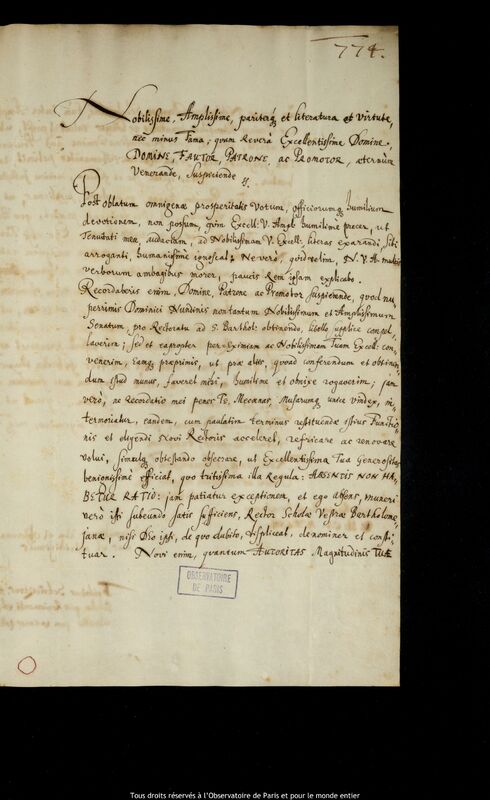 774.
Nobilissime, Amplissime, pariterq́ et literatura et virtute,
nec minus Fama, quam reverà Excellentissime Domine,
DOMINE, FAUTOR, PATRONE, ac PROMOTOR, æternùm
Venerande, Suspiciende
Post oblatum omnigenæ prosperitatis Votum, officiorumq́ humilium
devotionem, non possum, quin Excell: V. Ampl: humilime precer, ut
Tenuitati meæ, audaculam, ad Nobilissimam V. Excell: literas exarandi, sibi
arroganti, humanissime ignoscat; Ne verò, quid velim, N. V. A. multis
verborum ambagibus morer, paucis rem ipsam explicabo.
Recordaberis enim, Domine, Patrone ac Promotor suspiciende, quod nu-
perrimis Dominici Nundinis non tantum Nobilissimum et Amplissimum
Senatum, pro Rectoratu ad S. Barthol: obtinendo, libello supplice compel-
laverim; sed et eapropter per-Eximiam ac Nobilissimam Tuam Excell: con-
venerim, Eamq́ præprimis, ut præ aliis, quoad conferendum et obtinen-
dum istud munus, faveret mihi, humilime et obnixe rogaverim; jam
verò, ne recordatio mei penes Te, Mecœnas, Musarumq́ unice vindex, in-
termoriatur, tandem, cum paulatim terminus restituendæ istius Functio-
nis et eligendi Novi Rectoris acceleret, refricare ac renovare
volui, simulq́ obtestando obsecrare, ut Excellentissima Tua Generositas
benignissimè efficiat, quo tritissima illa Regula: ABSENTIS NON HA-
BETUR RATIO: jam patiatur exceptionem, et ego absens, muneri
verò isti subeundo satis sufficiens, Rector Scholæ Vestræ Bartholome-
janæ, nisi Deo ipsi, de quo dubito, displiceat, denominer et consti-
tuar. Novi enim, quantum AUTORITAS Magnitudinis TUÆ
OBSERVATOIRE
DE PARIS
Tous droits réservés à l'Observatoire de Paris et pour le monde entier